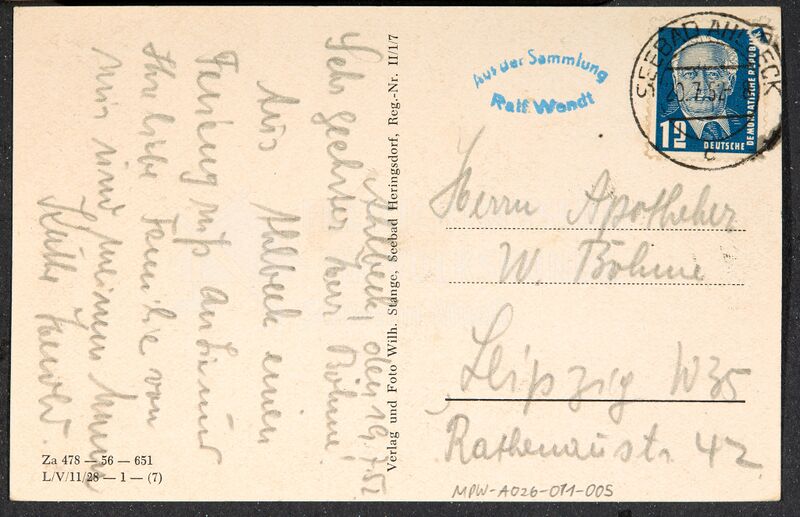 Ahlbeck, den 19.7.52
Sehr geehrter Herr Böhme!
Aus Ahlbeck einen
Feriengruß an Sie und
Ihre liebe Familie von
mir und meinem Manne
Käthe
Verlag und Foto Wilh. Stange, Seebad Heringsdorf, Reg.-Nr. II/1/7
Za 478 — 56 — 651
L/V/11/28 — 1 — (7)
Aus der Sammlung
Ralf Wendt
SEEBAD AHLBECK
20.7.52
c
12
DEUTSCHE
DEMOKRATISCHE REPUBLIK
Herrn Apotheker
W. Böhme
Leipzig W35
Rathenaustr. 42
MPW-A026-011-005